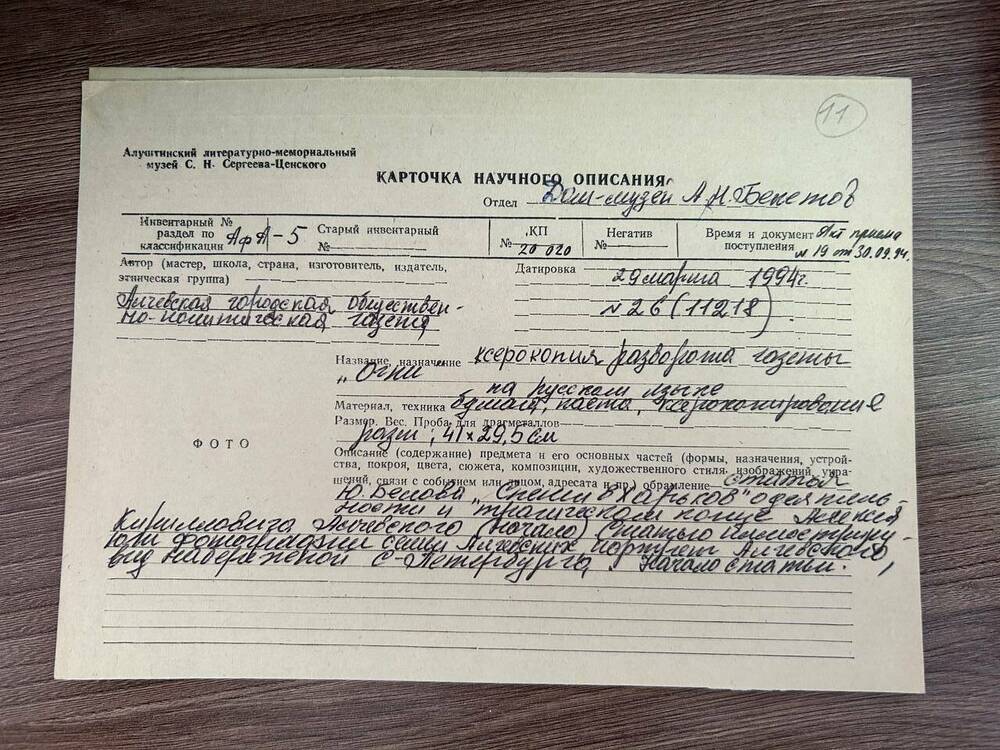 11
Алуштинский литературно-мемориальный
музей С. Н. Сергеева-Ценского
КАРТОЧКА НАУЧНОГО ОПИСАНИЯ
Отдел Дом-музей А.Н.Бекетов
Инвентарный №
раздел по
классификации АфА-5
Старый инвентарный
№
КП
№ 20 020
Негатив
№
Время и документ Акт приема
поступления № 19 от 30.09.94г.
Автор (мастер, школа, страна, изготовитель, издатель,
этническая группа)
Алчевская городская обществен-
но-политическая газета
Датировка
29 марта 1994г.
№ 26 (11218)
Название, назначение ксерокопия разворота газеты
„Огни"
на русском языке
Материал, техника бумага, паста, ксерокопирование
Размер. Вес. Проба для драгметаллов
разм; 41×29,5 см
ФОТО
Описание (содержание) предмета и его основных частей (формы, назначения, устрой-
ства, покроя, цвета, сюжета, композиции, художественного стиля, изображений, укра-
шений, связи с событием или лицом, адресата и пр.) обрамление статья
Ю.Белова „Спеши в Харьков" о деятель-
ности и трагическом конце Алексея
Кирилловича Алчевского (начало) Статью иллюстриру-
ют фотографии семьи Алчевских портрет Алчевского,
вид набережной С-Петербурга. Начало статьи.